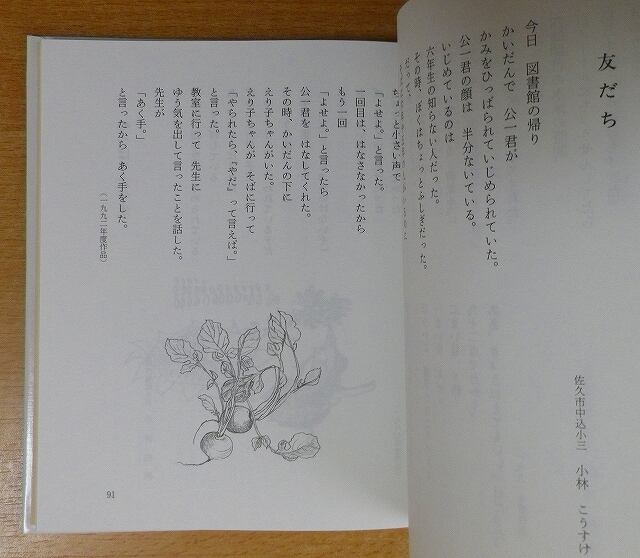 友だち
佐久市中込小三　小林　こうすけ
今日　図書館の帰り
かいだんで　公一君が
かみをひっぱられていじめられていた。
公一君の顔は　半分ないている。
いじめているのは
六年生の知らない人だった。
その時、ぼくはちょっとふしぎだった。
だって、
ちょっと小さい声で
「よせよ。」と言った。
一回目は、はなさなかったから
もう一回
「よせよ。」と言ったら
公一君を　はなしてくれた。
その時、かいだんの下に
えり子ちゃんがいた。
えり子ちゃんが　そばに行って
「やられたら、『やだ』って言えば。」
と言った。
教室に行って　先生に
ゆう気を出して言ったことを話した。
先生が
「あく手。」
と言ったから　あく手をした。
（一九九二年度作品）
91